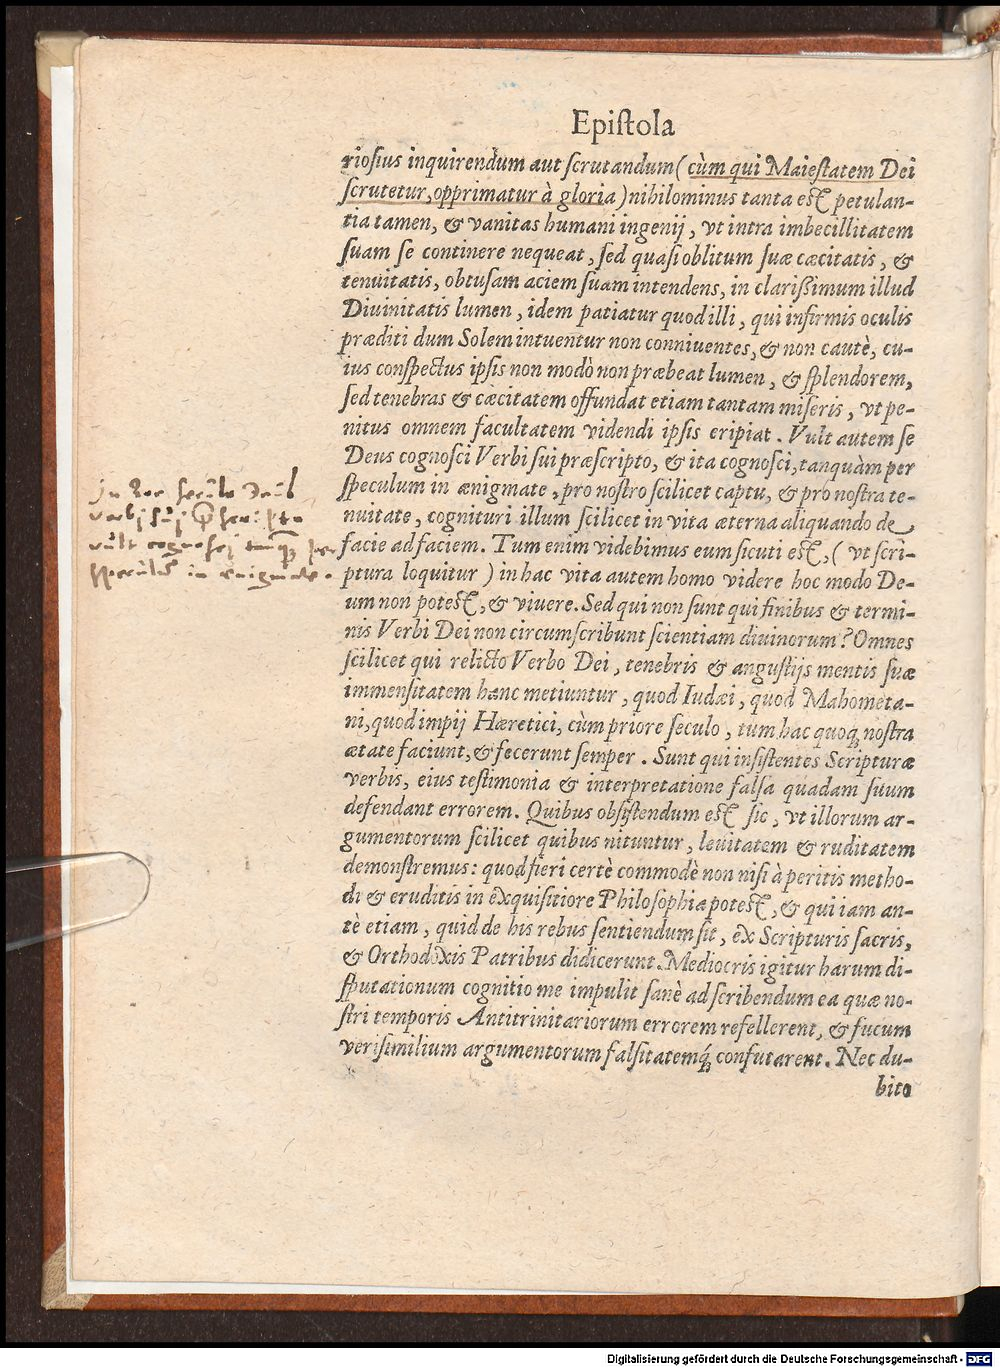 Epiſtola
rioſius inquirendum aut ſcrutandum (cùm qui Maieſtatem Dei
ſcrutetur, opprimatur à gloria) nihilominus tanta eſt petulan-
tia tamen, & vanitas humani ingenij, vt intra imbecillitatem
ſuam ſe continere nequeat, ſed quaſi oblitum ſuæ cæcitatis, &
tenuitatis, obtuſam aciem ſuam intendens, in clariſſimum illud
Diuinitatis lumen, idem patiatur quod illi, qui infirmis oculis
præditi dum Solem intuentur non conniuentes, & non cautè, cu-
ius conſpectus ipſis non modò non præbeat lumen, & ſplendorem,
ſed tenebras & cæcitatem offundat etiam tantam miſeris, vt pe-
nitus omnem facultatem videndi ipſis eripiat. Vult autem ſe
Deus cognoſci Verbi ſui præſcripto, & ita cognoſci, tanquàm per
ſpeculum in ænigmate, pro noſtro ſcilicet captu, & pro noſtra te-
nuitate, cognituri illum ſcilicet in vita æterna aliquando de
facie ad faciem. Tum enim videbimus eum ſicuti eſt, (vt ſcri-
ptura loquitur) in hac vita autem homo videre hoc modo De-
um non poteſt, & viuere. Sed qui non ſunt qui finibus & termi-
nis Verbi Dei non circumſcribunt ſcientiam diuinorum? Omnes
ſcilicet qui relicto Verbo Dei, tenebris & anguſtijs mentis ſuæ
immenſitatem hanc metiuntur, quod Iudæi, quod Mahometa-
ni, quod impij Hæretici, cùm priore ſeculo, tum hac quoq; noſtra
ætate faciunt, & fecerunt ſemper. Sunt qui inſiſtentes Scripturæ
verbis, eius teſtimonia & interpretatione falſa quadam ſuum
defendant errorem. Quibus obſiſtendum eſt ſic, vt illorum ar-
gumentorum ſcilicet quibus nituntur, leuitatem & ruditatem
demonſtremus: quod fieri certè commodè non niſi à peritis metho-
di & eruditis in exquiſitiore Philoſophia poteſt, & qui iam an-
tè etiam, quid de his rebus ſentiendum ſit, ex Scripturis ſacris,
& Orthodoxis Patribus didicerunt. Mediocris igitur harum di-
ſputationum cognitio me impulit ſanè ad ſcribendum ea quæ no-
ſtri temporis Antitrinitariorum errorem refellerent, & fucum
veriſimilium argumentorum falſitatemq́; confutarent. Nec du-
bito
verbj suj
vult cognoscj
speculū in enigmate.
Digitalisierung gefördert durch die Deutsche Forschungsgemeinschaft - DFG